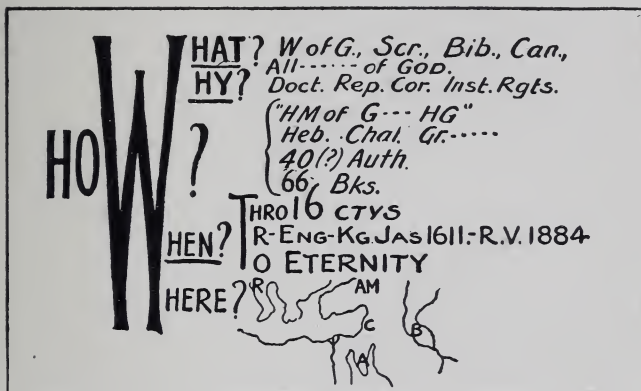 WHAT? W of G., Scr., Bib., Can.,
All------ of GOD.
WHY? Doct. Rep. Cor. Inst. Rgts.
HOW? "HM of G--- HG"
Heb. Chal. Gr.-----
40(?) Auth.
66 Bks.
WHEN? THRO 16 CTYS
TR-ENG-KG.JAS 1611.-R.V. 1884
TO ETERNITY
WHERE? R AM
C B
A